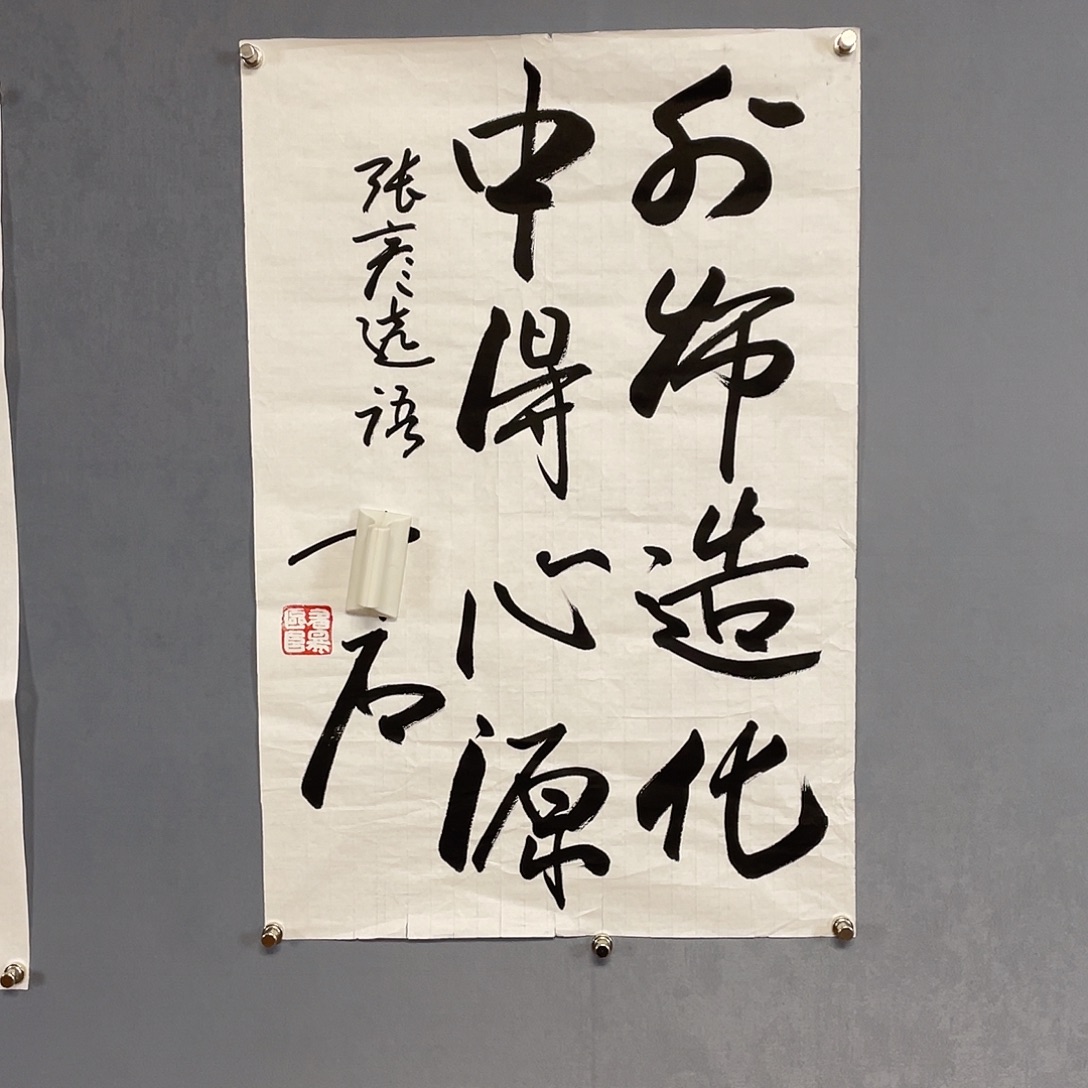 外师造化
中得心源
张彦远语
石